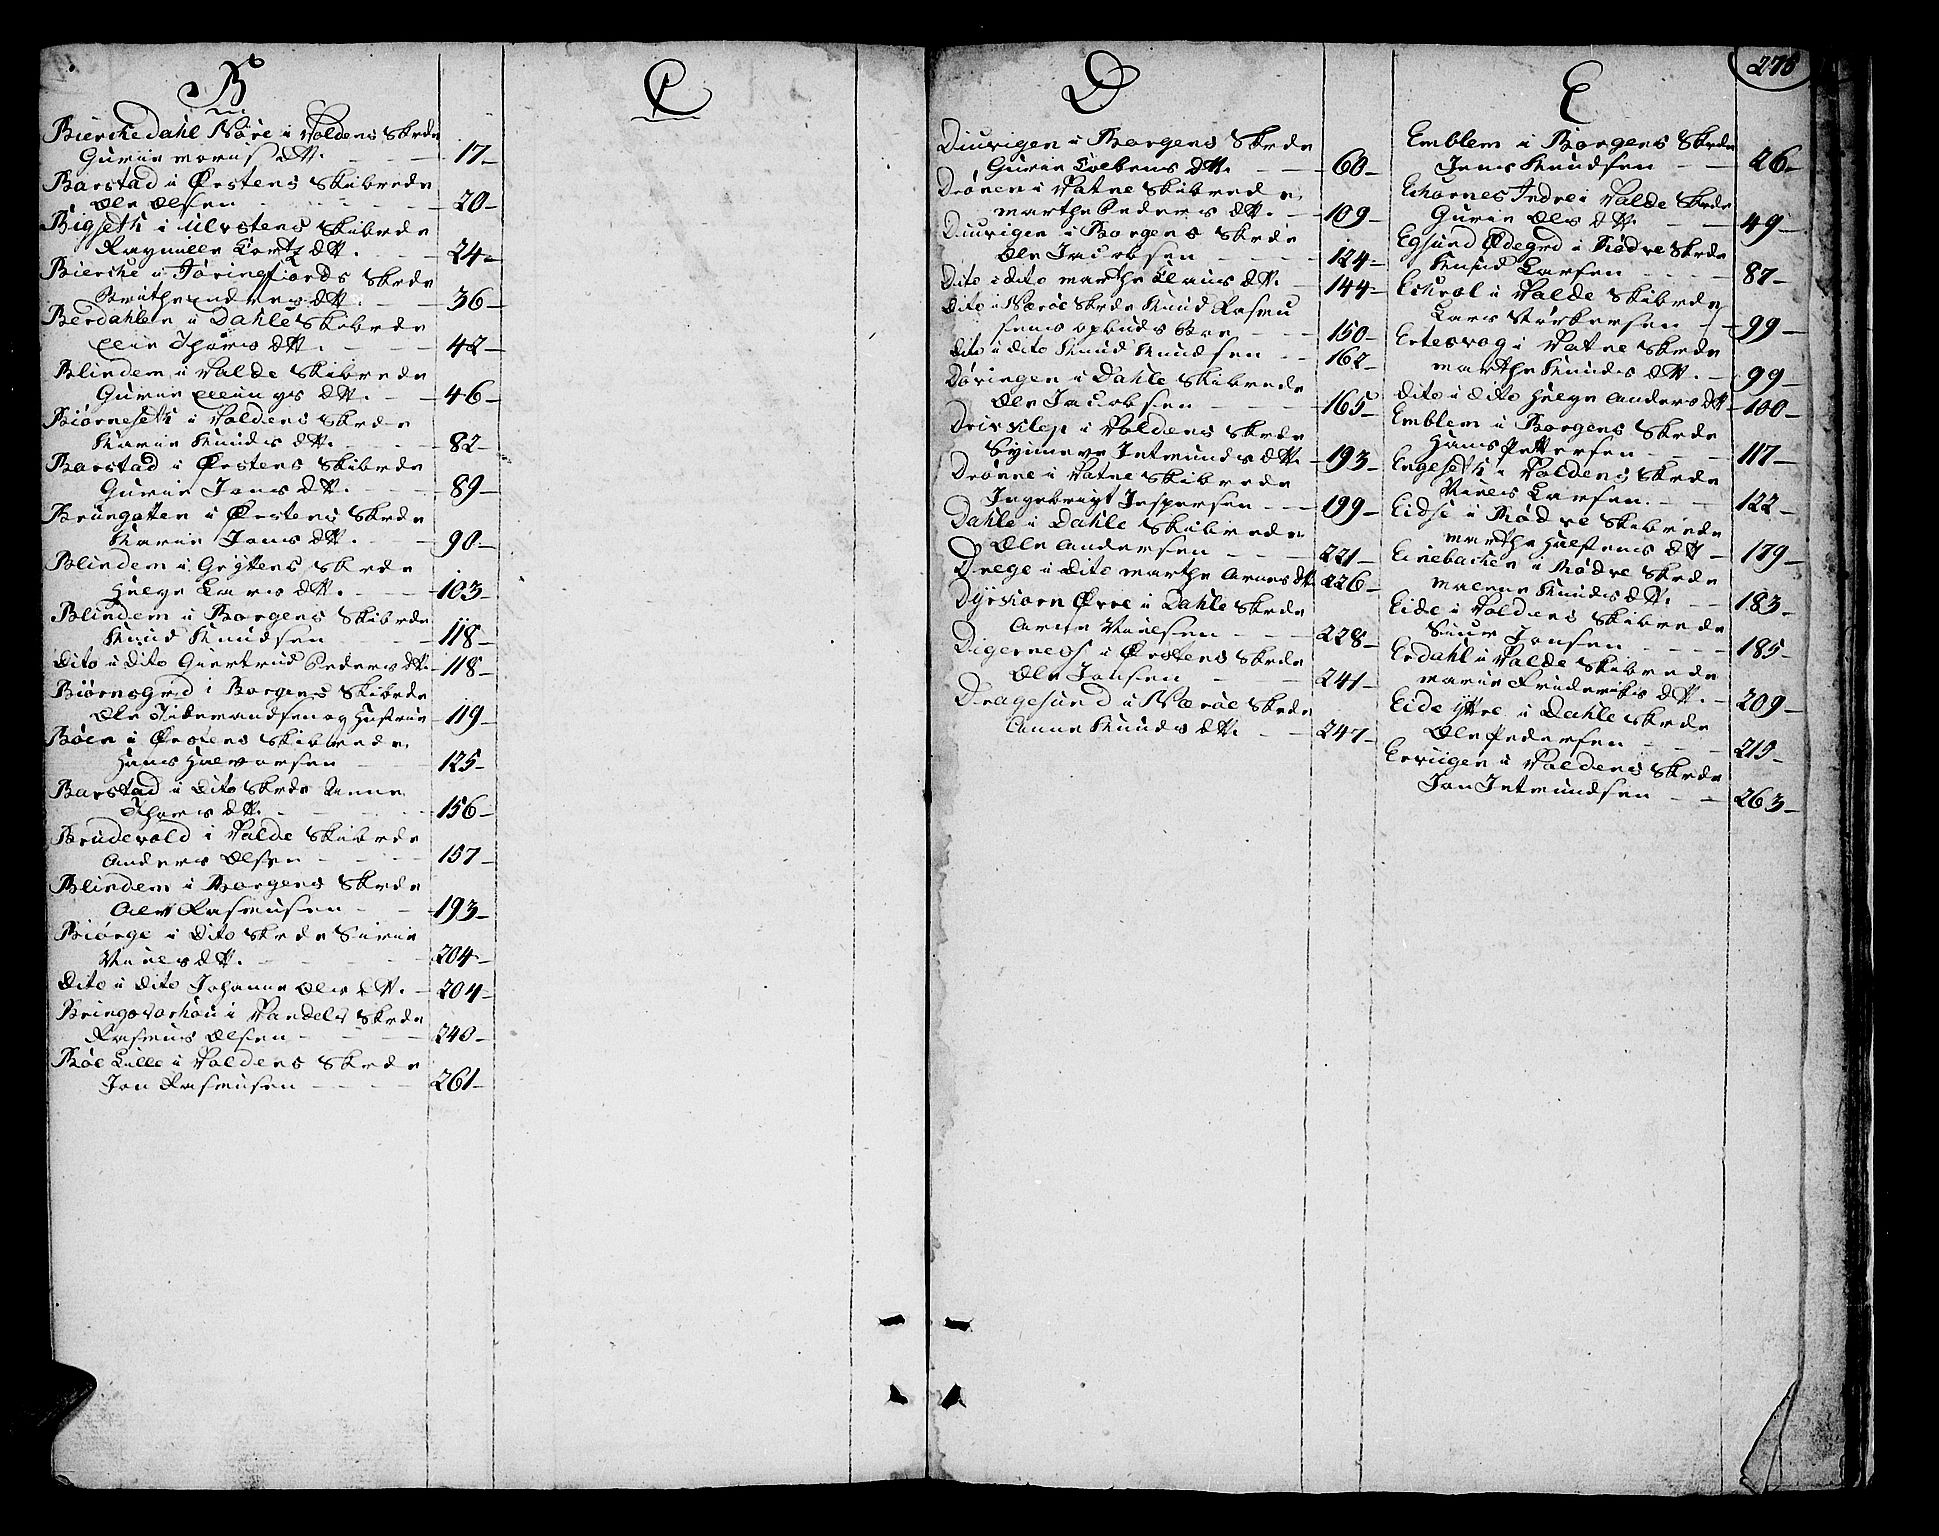 B
Bierchedahl Nøre i Voldens Skrde
Gurie DR. 17
Barstad i Ørstens Skibrede
Ole Olsen 20
Bigseth i Ulvstens Skibrede
Ragnille DR. 24
Bierche i Jøringfiords Skrde
DR. 36
Berdahlen i Dahle Skibrede
Elie Thors DR. 42
Blindem i Valde Skibrede
Gurie Ellings DR. 46
Biørneseth i Voldens Skrde
Marie Knuds DR. 82
Barstad i Ørstens Skibrede
Gurie Jons DR. 89
Brungatten i Ørstens Skrde
Marie Jons DR. 90
Blindem i Gryttens Skrde
Helge Lars DR. 103
Blindem i Borgens Skibrede
Knud Knudsen 118
Dito i Dito Giertrud Peders DR. 118
Biørnsgrd i Borgens Skibrde
Ole Tidemandsen og Hustrue 119
Bøen i Ørstens Skibrede
Hans Halvorsen 125
Barstad i Dito Skrde Anne
Thors DR. 156
Brudevold i Valde Skibrede
Anders Olsen 157
Blindem i Borgens Skrde
Ole Rasmusen 193
Biørge i Dito Skrde Sirie
Niels DR. 204
Dito i Dito Johanne Ols DR. 204
Bringsvorhou i Vandels Skrde
Rasmus Olsen 240
Bøe Lille i Voldens Skrede
Jon Rasmusen 261
C
D
Diuvigen i Borgens Skrede
Gurie DR. 60
Drønen i Vatne Skibrede
Marthe Peders DR. 109
Diuvigen i Borgens Skrde
Ole Jacobsen 124
Dito i dito Marthe Claus DR. 144
Dito i Nærøe Skrde Knud Rasmu
sens opbuds Boe 150
Dito i dito Knud Knudsen 162
Døvingen i Dahle Skibrede
Ole Jacobsen 165
Drivslep i Voldens Skrde
Synneve Jetmunds DR. 193
Drønne i Vatne Skibrede
Ingebrigt Jespersen 199
Dahle i Dahle Skibrede
Ole Andersen 221
Drege i dito Marthe Arnes DR. 226
Dyrkorn Øvre i Dahle Skrde
Arne Nielsen 228
Digerness i Ørstens Skrde
Ole Jonsen 241
Dragesund i Nærøe Skrde
Anne Knuds DR. 247
E
276
Emblem i Borgens Skrde
Jens Knudsen 26
Ekornes Indre i Valde Skrde
Gurie Ols DR. 49
Egsund Ødegrd i Rødve Skrde
Knud Larsen 87
Ekrol i Valde Skibrede
Lars 99
Ertesvog i Vatne Skrde
Marthe Knuds DR. 99
Dito i dito Helge Anders DR. 100
Emblem i Borgens Skrde
Hans Pettersen 117
Engeseth i Voldens Skrede
Niels Larsen 122
Eidse i Rødve Skibrede
Marthe DR. 179
Einebacken i Rødve Skrde
Malene Knuds DR. 183
Eide i Voldens Skibrede
Siur Jonsen 185
Erdahl i Valde Skibrede
Marie Fridrichs DR. 209
Eide Yttre i Dahle Skrde
Ole Pedersen 215
Erviigen i Voldens Skrde
Jon Jetmundsen 263